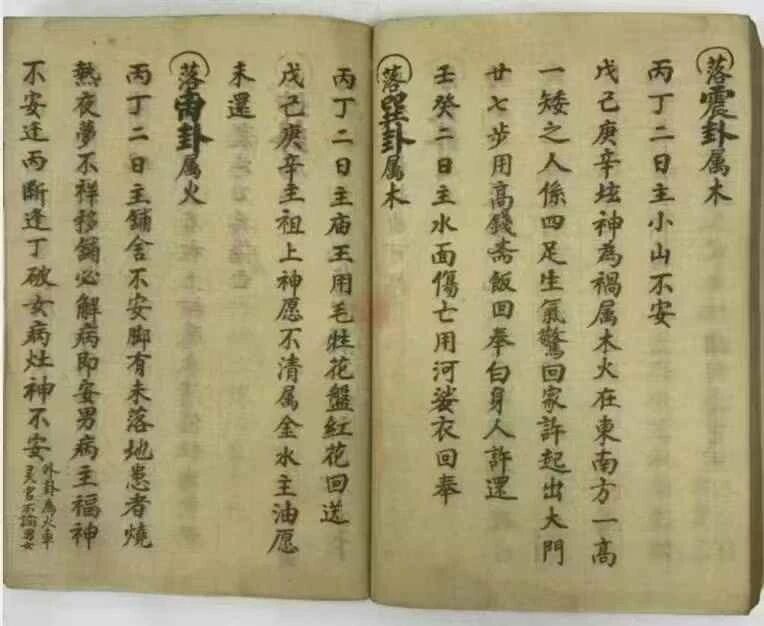 落震卦属木
丙丁二日主小山不安
戊己庚辛坛神為禍属木火在東南方一高
一矮之人係四足生氣驚回家許起出大門
廿七步用高錢斋飯回奉白身人許還
壬癸二日主水面傷亡用河娑衣回奉
落巽卦属木
丙丁二日主庙王用毛牲花盤紅花回送
戊己庚辛主祖上神愿不清属金水主油愿
未還
落离卦属火
丙丁二日主鋪舍不安脚有未落地患者燒
熱夜夢不祥移鋪必解病即安男病主福神
不安逢丙斷逢丁破女病灶神不安
外卦為火車
灵官不論男女